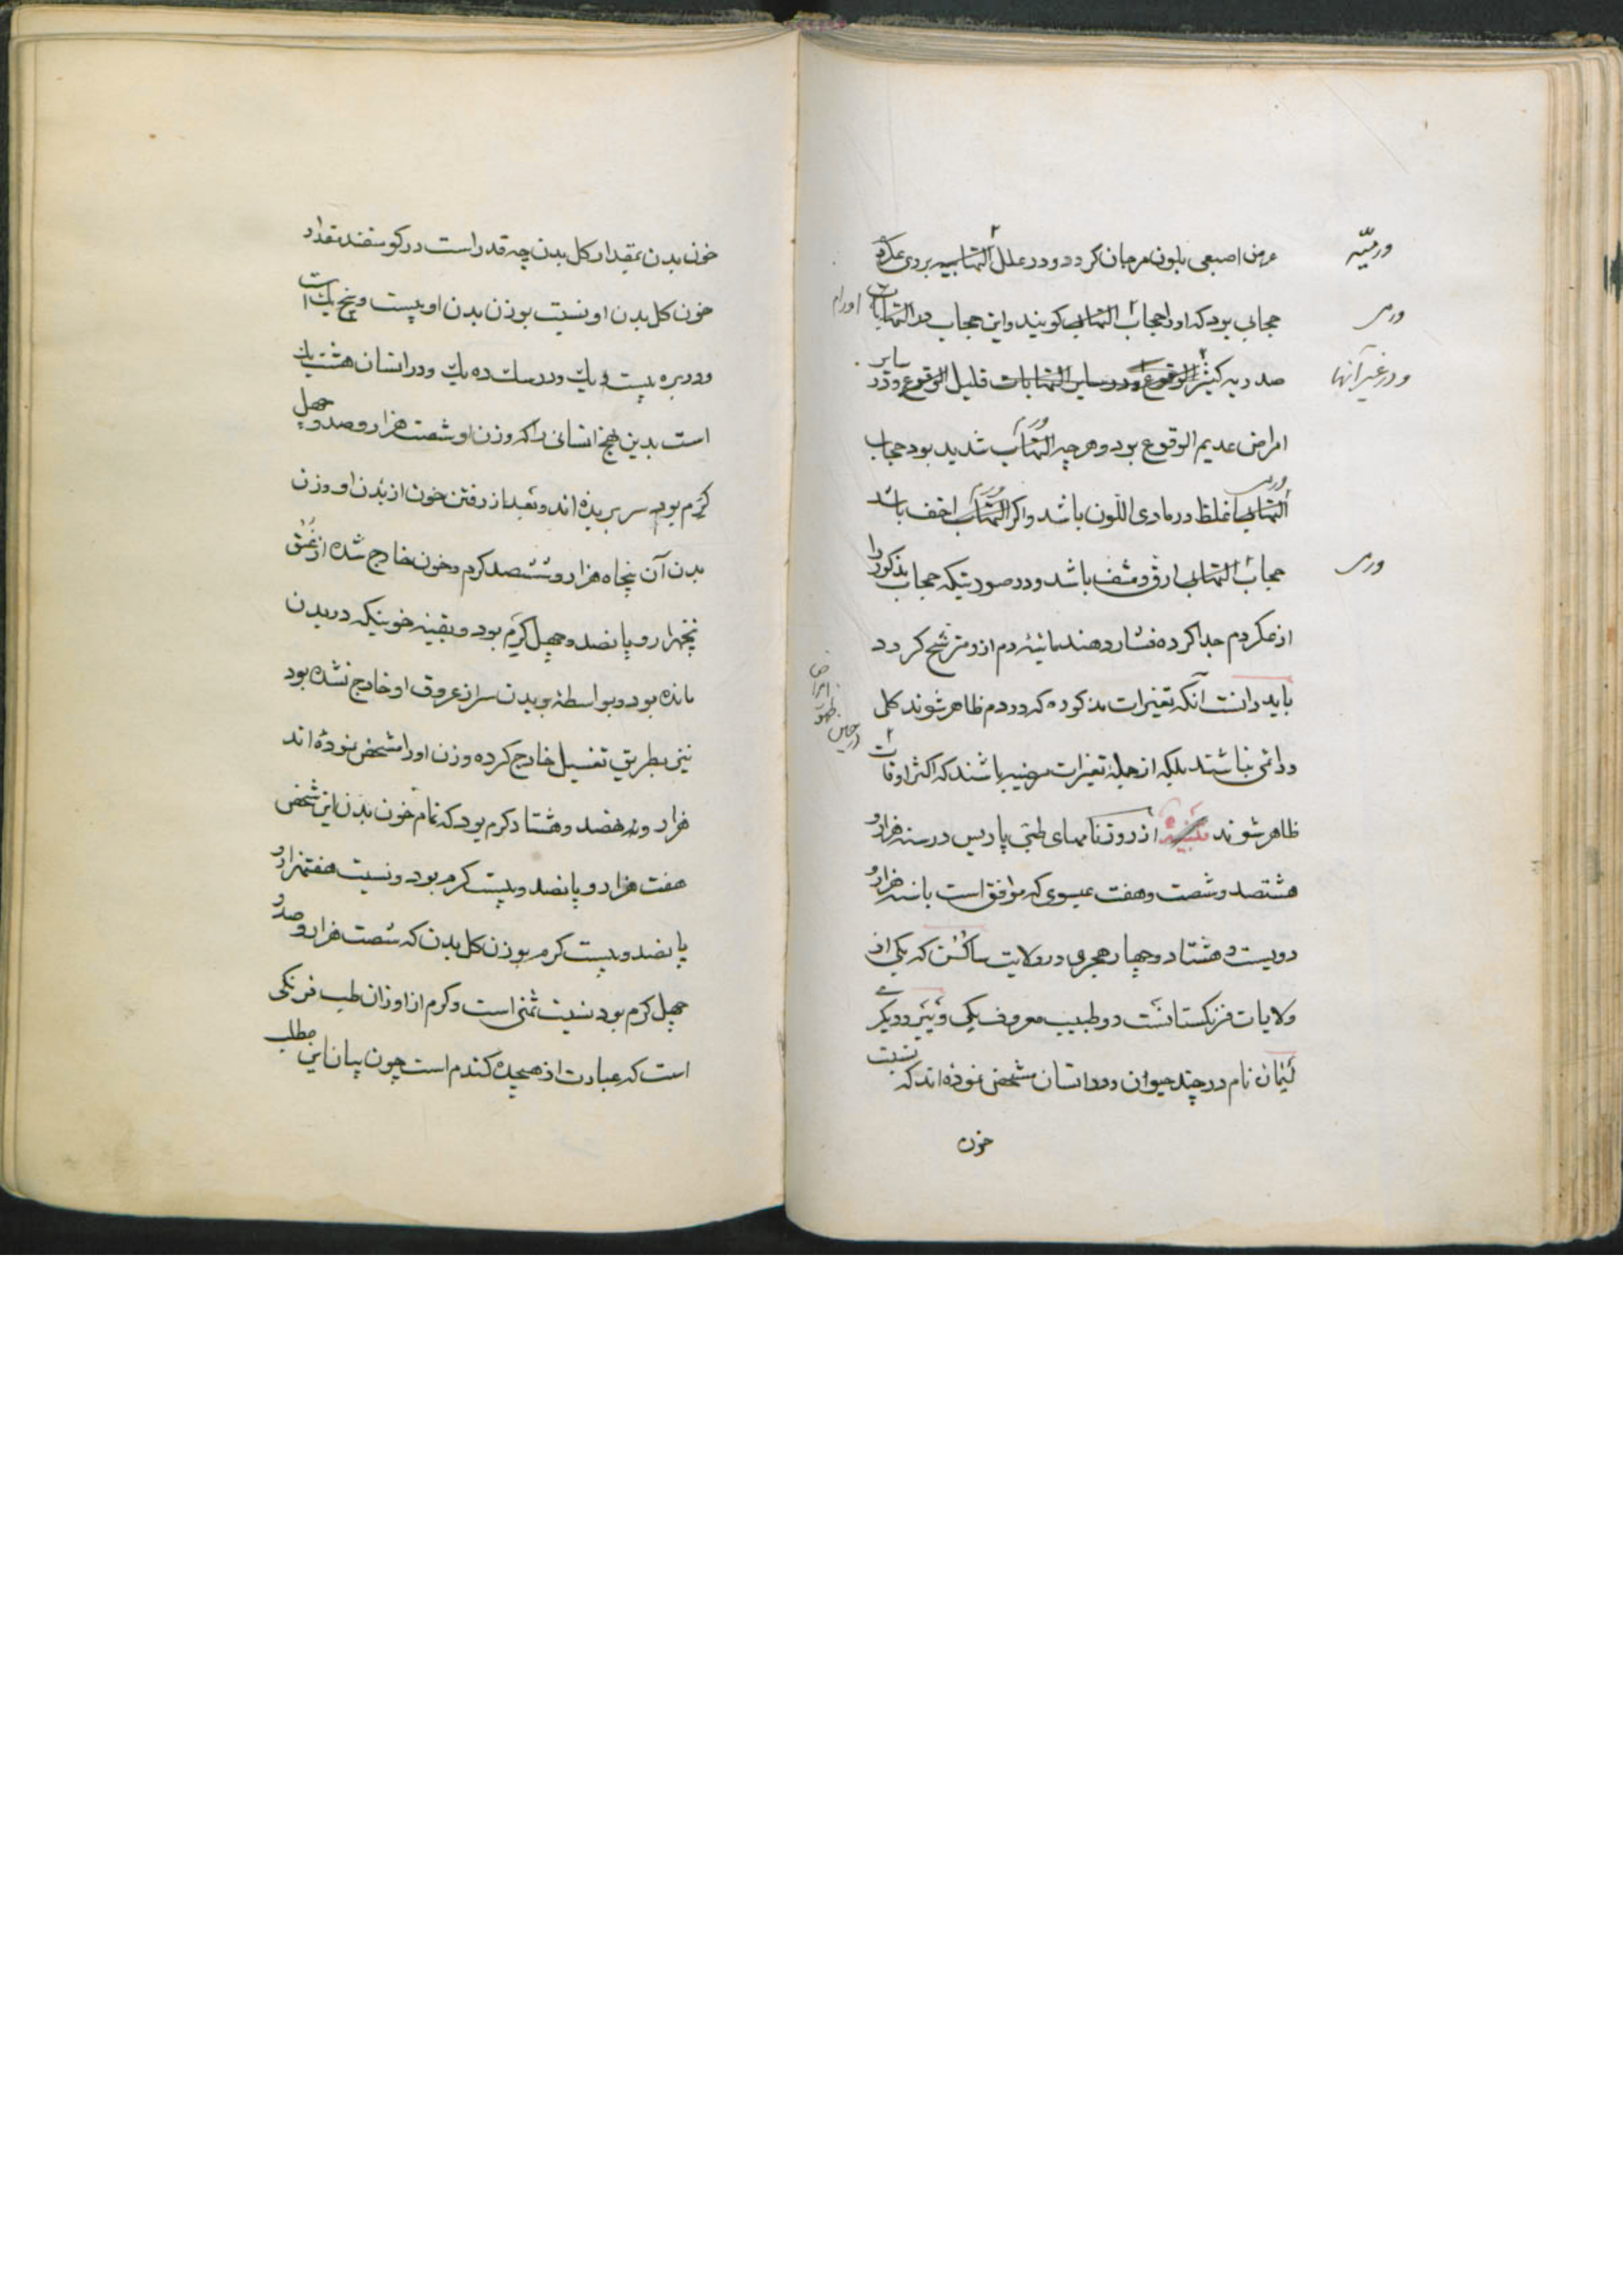 عرض اصبعی بلون مرجان کردد و در علل التهابیه بر دی عکره
ورمیّه
حجابی بود که اورا حجاب التهابی کویند و این حجاب در التهابات
ورمی
اورام
صدریه کثیر الوقوع و در سایر التهابات قلیل الوقوع و در سایر
و در غیر آنها
امراض عدیم الوقوع بود و هر چه التهاب شدید بود حجاب
ورم
التهابی اغلظ و رمادی اللّون باشد و اکر التهاب اخف باشد
ورمی
ورم
حجاب التهابی ارق و مشف باشد و در صورتیکه حجاب مذکور را
ورمی
از عکر دم جدا کرده فشار دهند مائیّه دم از و مترشح کردد
باید دانست آنکه تغیرات مذکوره که در دم ظاهر شوند کلی
و دائمی نباشند بلکه از جملهٔ تغیرات مرضیه باشند که اکثر اوقات
در حین ظهور امراض
ظاهر شوند تنبیه از روزنامهای طبّی پاریس در سنه هزار و
هشتصد و شصت و هفت عیسوی که موافق است با سنه هزار و
دویست و هشتاد و چهار هجری در ولایت ساکسُن که یکی از
ولایات فرنکستانست دو طبیب معروف یکی وئیبر و دیکری
لیمان نام در چند حیوان و در انسان مشخص نموده اند که نسبت
خون
خون بدن بمقدار کل بدن چه قدر است در کوسفند مقدار
خون کل بدن او نسبت بوزن بدن او بیست و پنج یک است
و در بره بیست و یک و در سک ده یک و در انسان هشت یک
است بدین نهج انسانی را که وزن او شصت هزار و صد و چهل
کرم بود سر بریده اند و بعد از رفتن خون از بدن او وزن
بدن آن پنجاه هزار و ششصد کرم و خون خارج شده از عُنُق
پنجهزار و پانصد و چهل کرم بود و بقیّه خونیکه در بدن
مانده بود و بواسطهٔ بریدن سر از عروق او خارج نشده بود
نیز بطریق تغسیل خارج کرده وزن او را مشخص نموده اند
هزار و نهصد و هشتاد کرم بود که تمام خون بدن این شخص
هفت هزار و پانصد و بیست کرم بود و نسبت هفتهزار و
پانصد و بیست کرم بوزن کل بدن که شصت هزار و صد و
چهل کرم بود نسبت ثمنی است و کرم از اوزان طب فرنکی
است که عبارت از هیجده کندم است چون بیان این مطلب